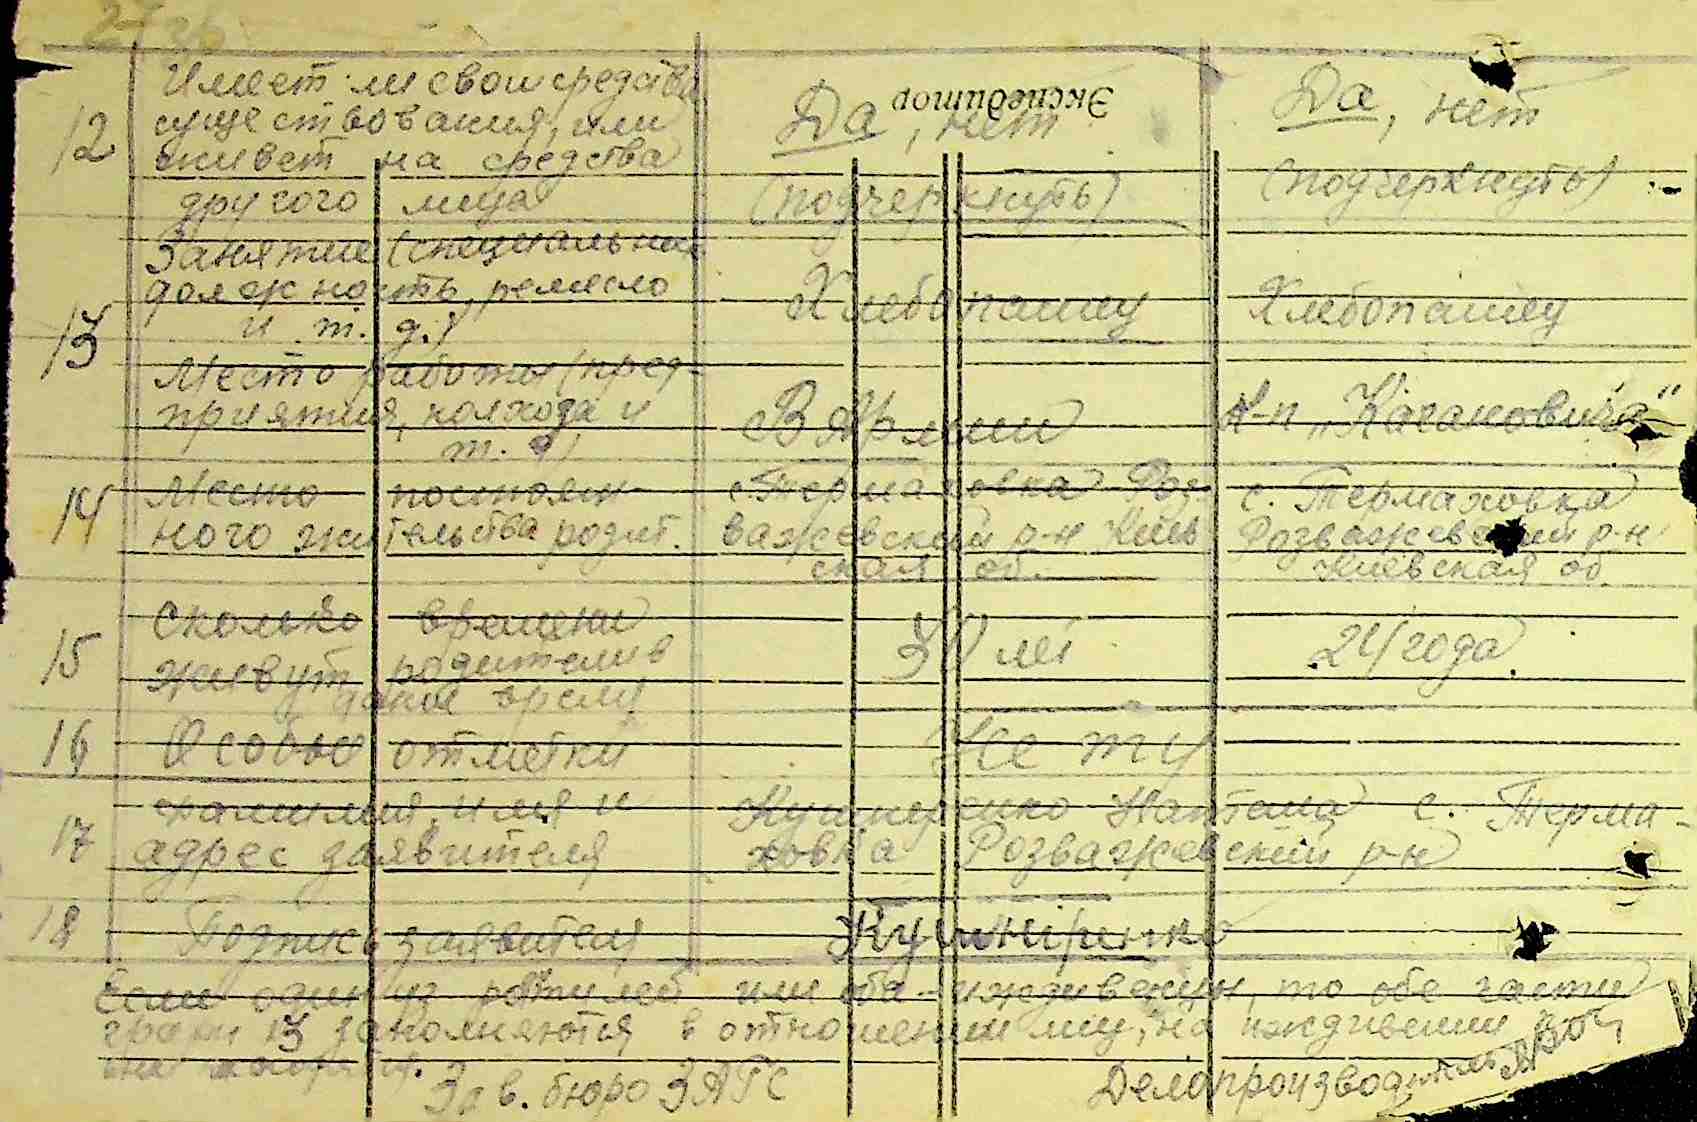 12 Имеет ли свои средства
существования, или
живет на средства
другого лица
Да, нет
(подчеркнуть)
Экспедитор
Да, нет
(подчеркнуть)
13 Занятие (специальная
должность, ремесло
и т. д.)
Хлебопашец
Хлебопашец
Место работы (пред-
приятия, колхоза и
т. д)
В Армии
К-п „Кагановича"
14 Место постоян-
ного жительства родит.
с. Термаховка Роз-
важевский р-н Киев
ская об.
с. Термаховка
Розважевский р-н
Киевская об.
15 Сколько времени
живут родители в
даное время
30 лет
24 года
16 Особые отметки
Нету
17 Фамилия, имя и
адрес заявителя
Кушнеренко с. Терма-
ховка Розважевский р-н
18 Подпись заявителя
Кушніренко
Если один из родителей или оба - иждивенцы, то обе части
графи 13 заполняются в отношении лиц, на иждивении
Зав. бюро ЗАГС
Делопроизводитель